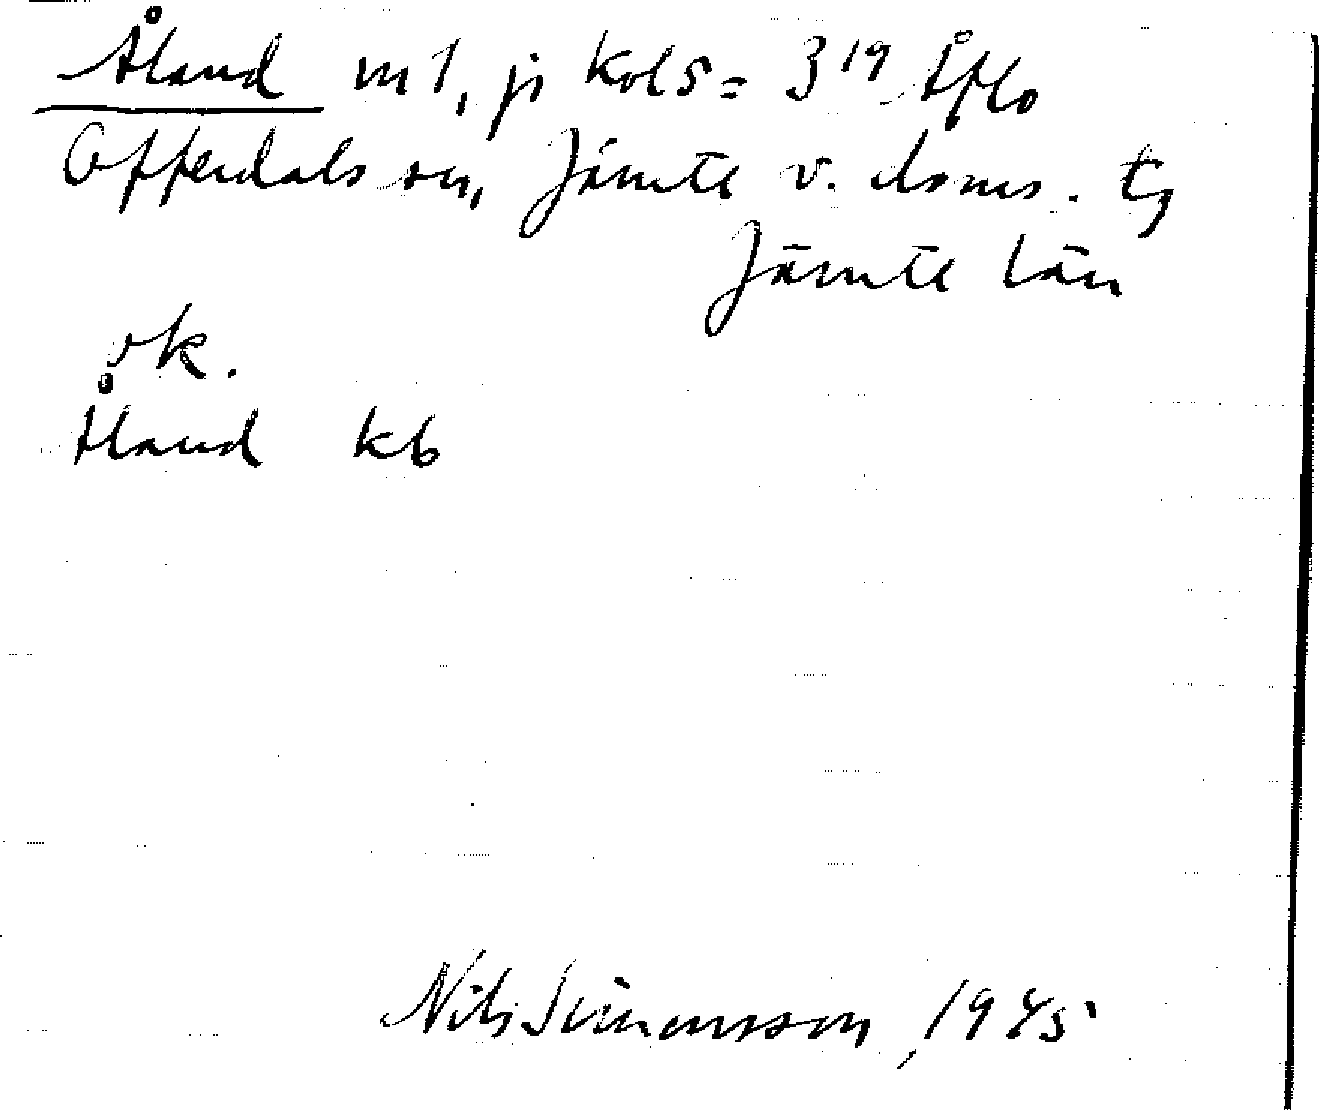 Åland m 1, ji Kol 5 = 3 19 Åflo
Offerdals sn, Jämte v. doms. tg
Jämte län
ok.
Åland kb
Nils Simonsson, 1945